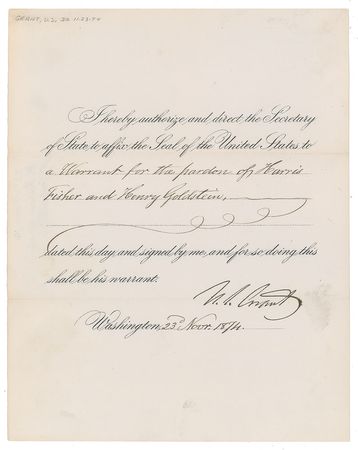 GRANT, U.S. DS 11-23-74
I hereby authorize and direct the Secretary
of State to affix the Seal of the United States to
a Warrant for the pardon of Harris
Fisher and Henry Goldstein,
dated this day and signed by me, and for so doing this
shall be his warrant.
U. S. Grant
Washington, 23d Novr. 1874.